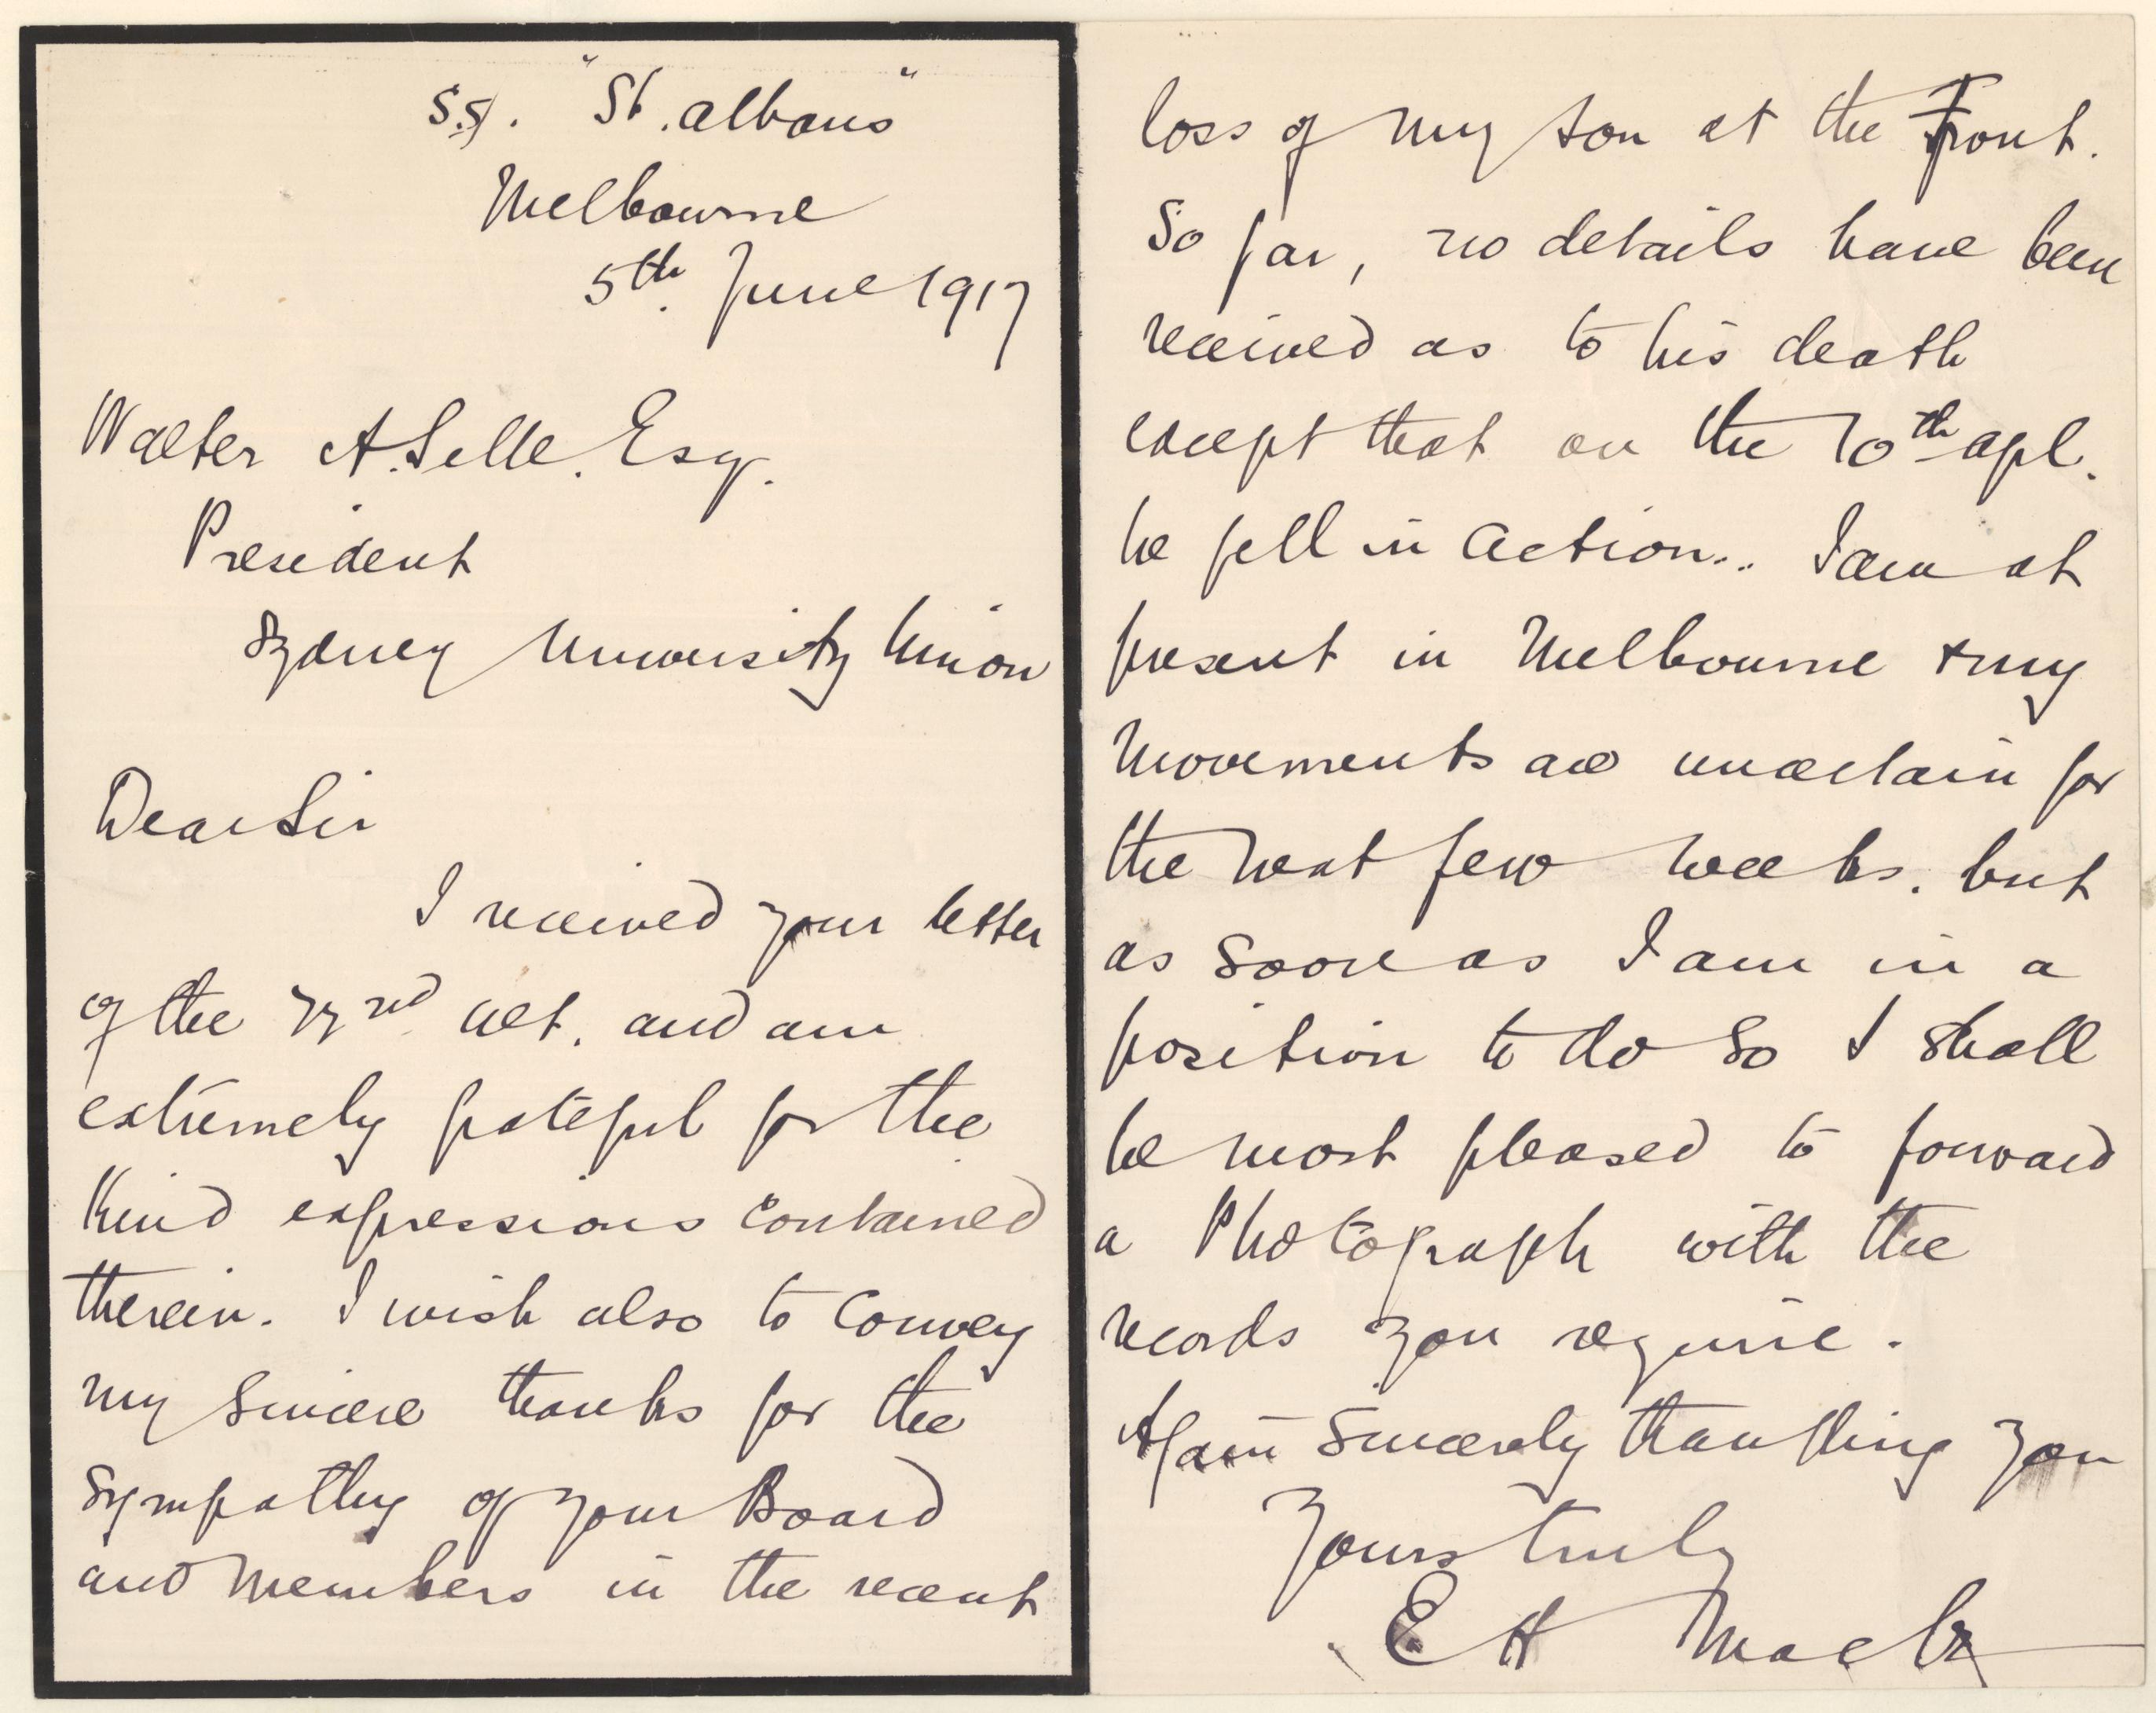 S.S. "St. Albans"
Melbourne
5th. June 1917
Walter A. Selle. Esq.
President
Sydney University Union
Dear Sir
I received your letter
of the 23rd ult. and am
extremely grateful for the
kind expressions contained
therein. I wish also to convey
my sincere thanks for the
sympathy of your Board
and members in the recent
loss of my son at the Front.
So far, no details have been
received as to his death
except that on the 10th apl.
he fell in action.. I am at
present in Melbourne & my
movements are uncertain for
the next few weeks. but
as soon as I am in a
position to do so I shall
be most pleased to forward
a Photograph with the
records you require.
Again sincerely thanking you
Yours truly
E H Mack